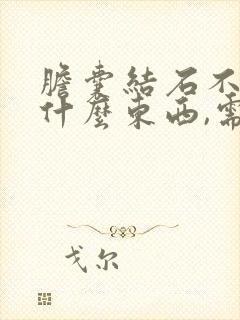 膽囊結石不
什麼東西,需
戈尔